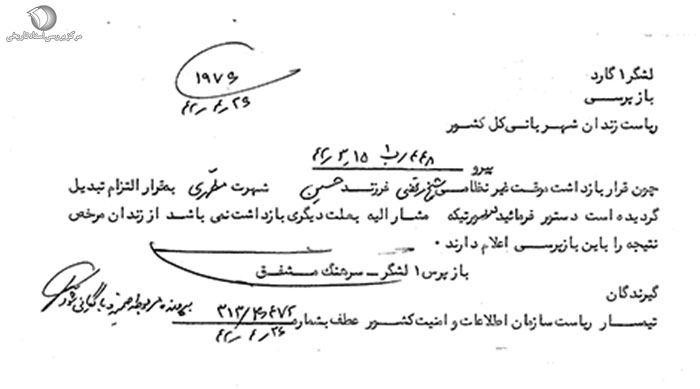 مرکز بررسی اسناد تاریخی
۱۹۷۶
۴۲٫۴٫۲۶
لشگر ۱ گارد
بازپرسی
ریاست زندان شهربانی کل کشور
پیرو ۴۴۸/ب۱ ۴۲٫۳٫۱۵
چون قرار بازداشت موقت غیر نظامی شیخ مرتضی فرزند حسین شهرت مطهری بقرار التزام تبدیل
گردیده است دستور فرمائید در صورتیکه مشار الیه بعلت دیگری بازداشت نمی باشد از زندان مرخص
نتیجه را باین بازپرسی اعلام دارند .
بازپرس ۱ لشگر ــ سرهنگ مشفق
گیرندگان
تیمسار ریاست سازمان اطلاعات و امنیت کشور عطف بشماره
۴۲٫۴٫۲۶
پرونده مربوطه ضمیمه و بایگانی شود